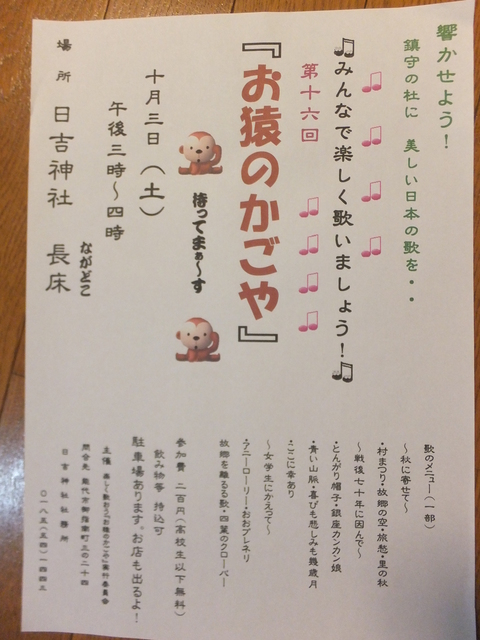 響かせよう！
鎮守の杜に　美しい日本の歌を・・
♫みんなで楽しく歌いましょう！♫
第十六回
『お猿のかごや』
待ってまぁ～す
十月三日（土）
午後三時～四時
ながどこ
場所　日吉神社　長床
歌のメニュー（一部）
～秋に寄せて～
・村まつり・故郷の空・旅愁・里の秋
～戦後七十年に因んで～
・とんがり帽子・銀座カンカン娘
・青い山脈・喜びも悲しみも幾歳月
・ここに幸あり
～女学生にかえって～
・アニーローリー・おおブレネリ
故郷を離るる歌・四葉のクローバー
参加費　二百円（高校生以下無料）
飲み物等　持込可
駐車場あります。お店も出るよ！
主催　楽しく歌おう『お猿のかごや』実行委員会
問合先　能代市御指南町三の二十四
日吉神社社務所
〇一八五（五四）一四四三